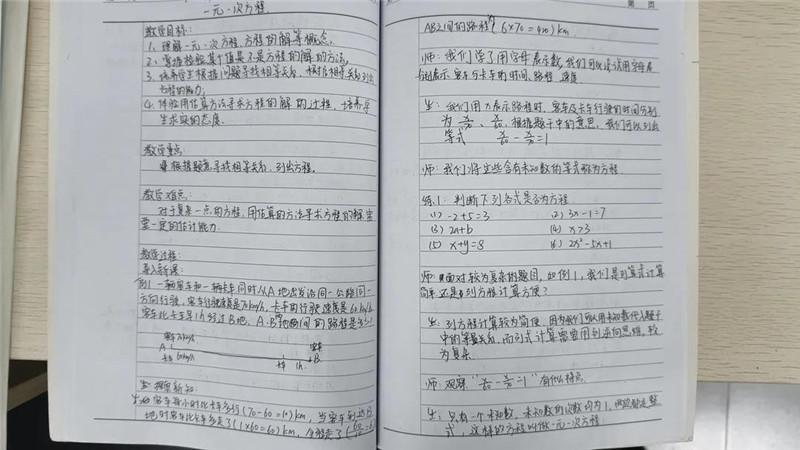 一元一次方程
教学目标:
1. 理解一元一次方程, 方程的解等概念,
2. 掌握检验某个值是不是方程的解的方法,
3. 培养学生根据问题寻找相等关系、根据相等关系列出
方程的能力,
4. 体验用估算方法寻求方程的解的过程, 培养学
生求实的态度.
教学重点:
根据题意寻找相等关系、列出方程.
教学难点:
对于复杂一点的方程, 用估算的方法寻求方程的解需
要一定的估计能力.
教学过程:
导入新课:
例1 一辆客车和一辆卡车同时从A地出发沿同一公路同一
方向行驶, 客车行驶速度是70km/h, 卡车的行驶速度是60km/h
客车比卡车早1h经过B地, A、B两地间的路程是多少?
客车70km/h
A
卡车60km/h
客车
B
卡车 1h
探究新知:
生: 客车每小时比卡车多行(70-60=10)km, 当客车到达B
地时客车比卡车多走了(1×60=60)km,
第 页
AB之间的路程(6×70=420)km.
师: 我们学了用字母表示数, 我们可以试试用字母
表示客车与卡车的时间、路程、速度.
生: 我们用x表示路程时, 客车及卡车行驶的时间分别
为 x/70、x/60, 根据题干中的意思, 我们可以列出
等式 x/60 - x/70 = 1
师: 我们将这些含有未知数的等式称为方程
练1: 判断下列各式是否为方程
(1) -2+5=3 (2) 3x-1=7
(3) 2a+b (4) x>3
(5) x+y=8 (6) 2x²-5x+1
师: 面对较为复杂的题目, 如例1, 我们是列算式计算
简单还是列方程计算方便?
生: 列方程计算较为简便, 因为我们可以用未知数代入题干
中的等量关系, 而列式计算需要用到逆向思维, 较
为复杂.
师: 观察 "x/60 - x/70 = 1" 有什么特点
生: 只有一个未知数, 未知数的次数均为1, 两边都是整
式, 这样的方程叫做一元一次方程